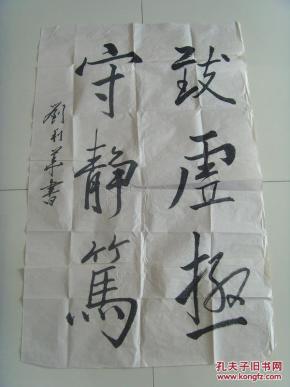 致虚極
守静篤
劉利華書
孔夫子旧书网
www.kongfz.com